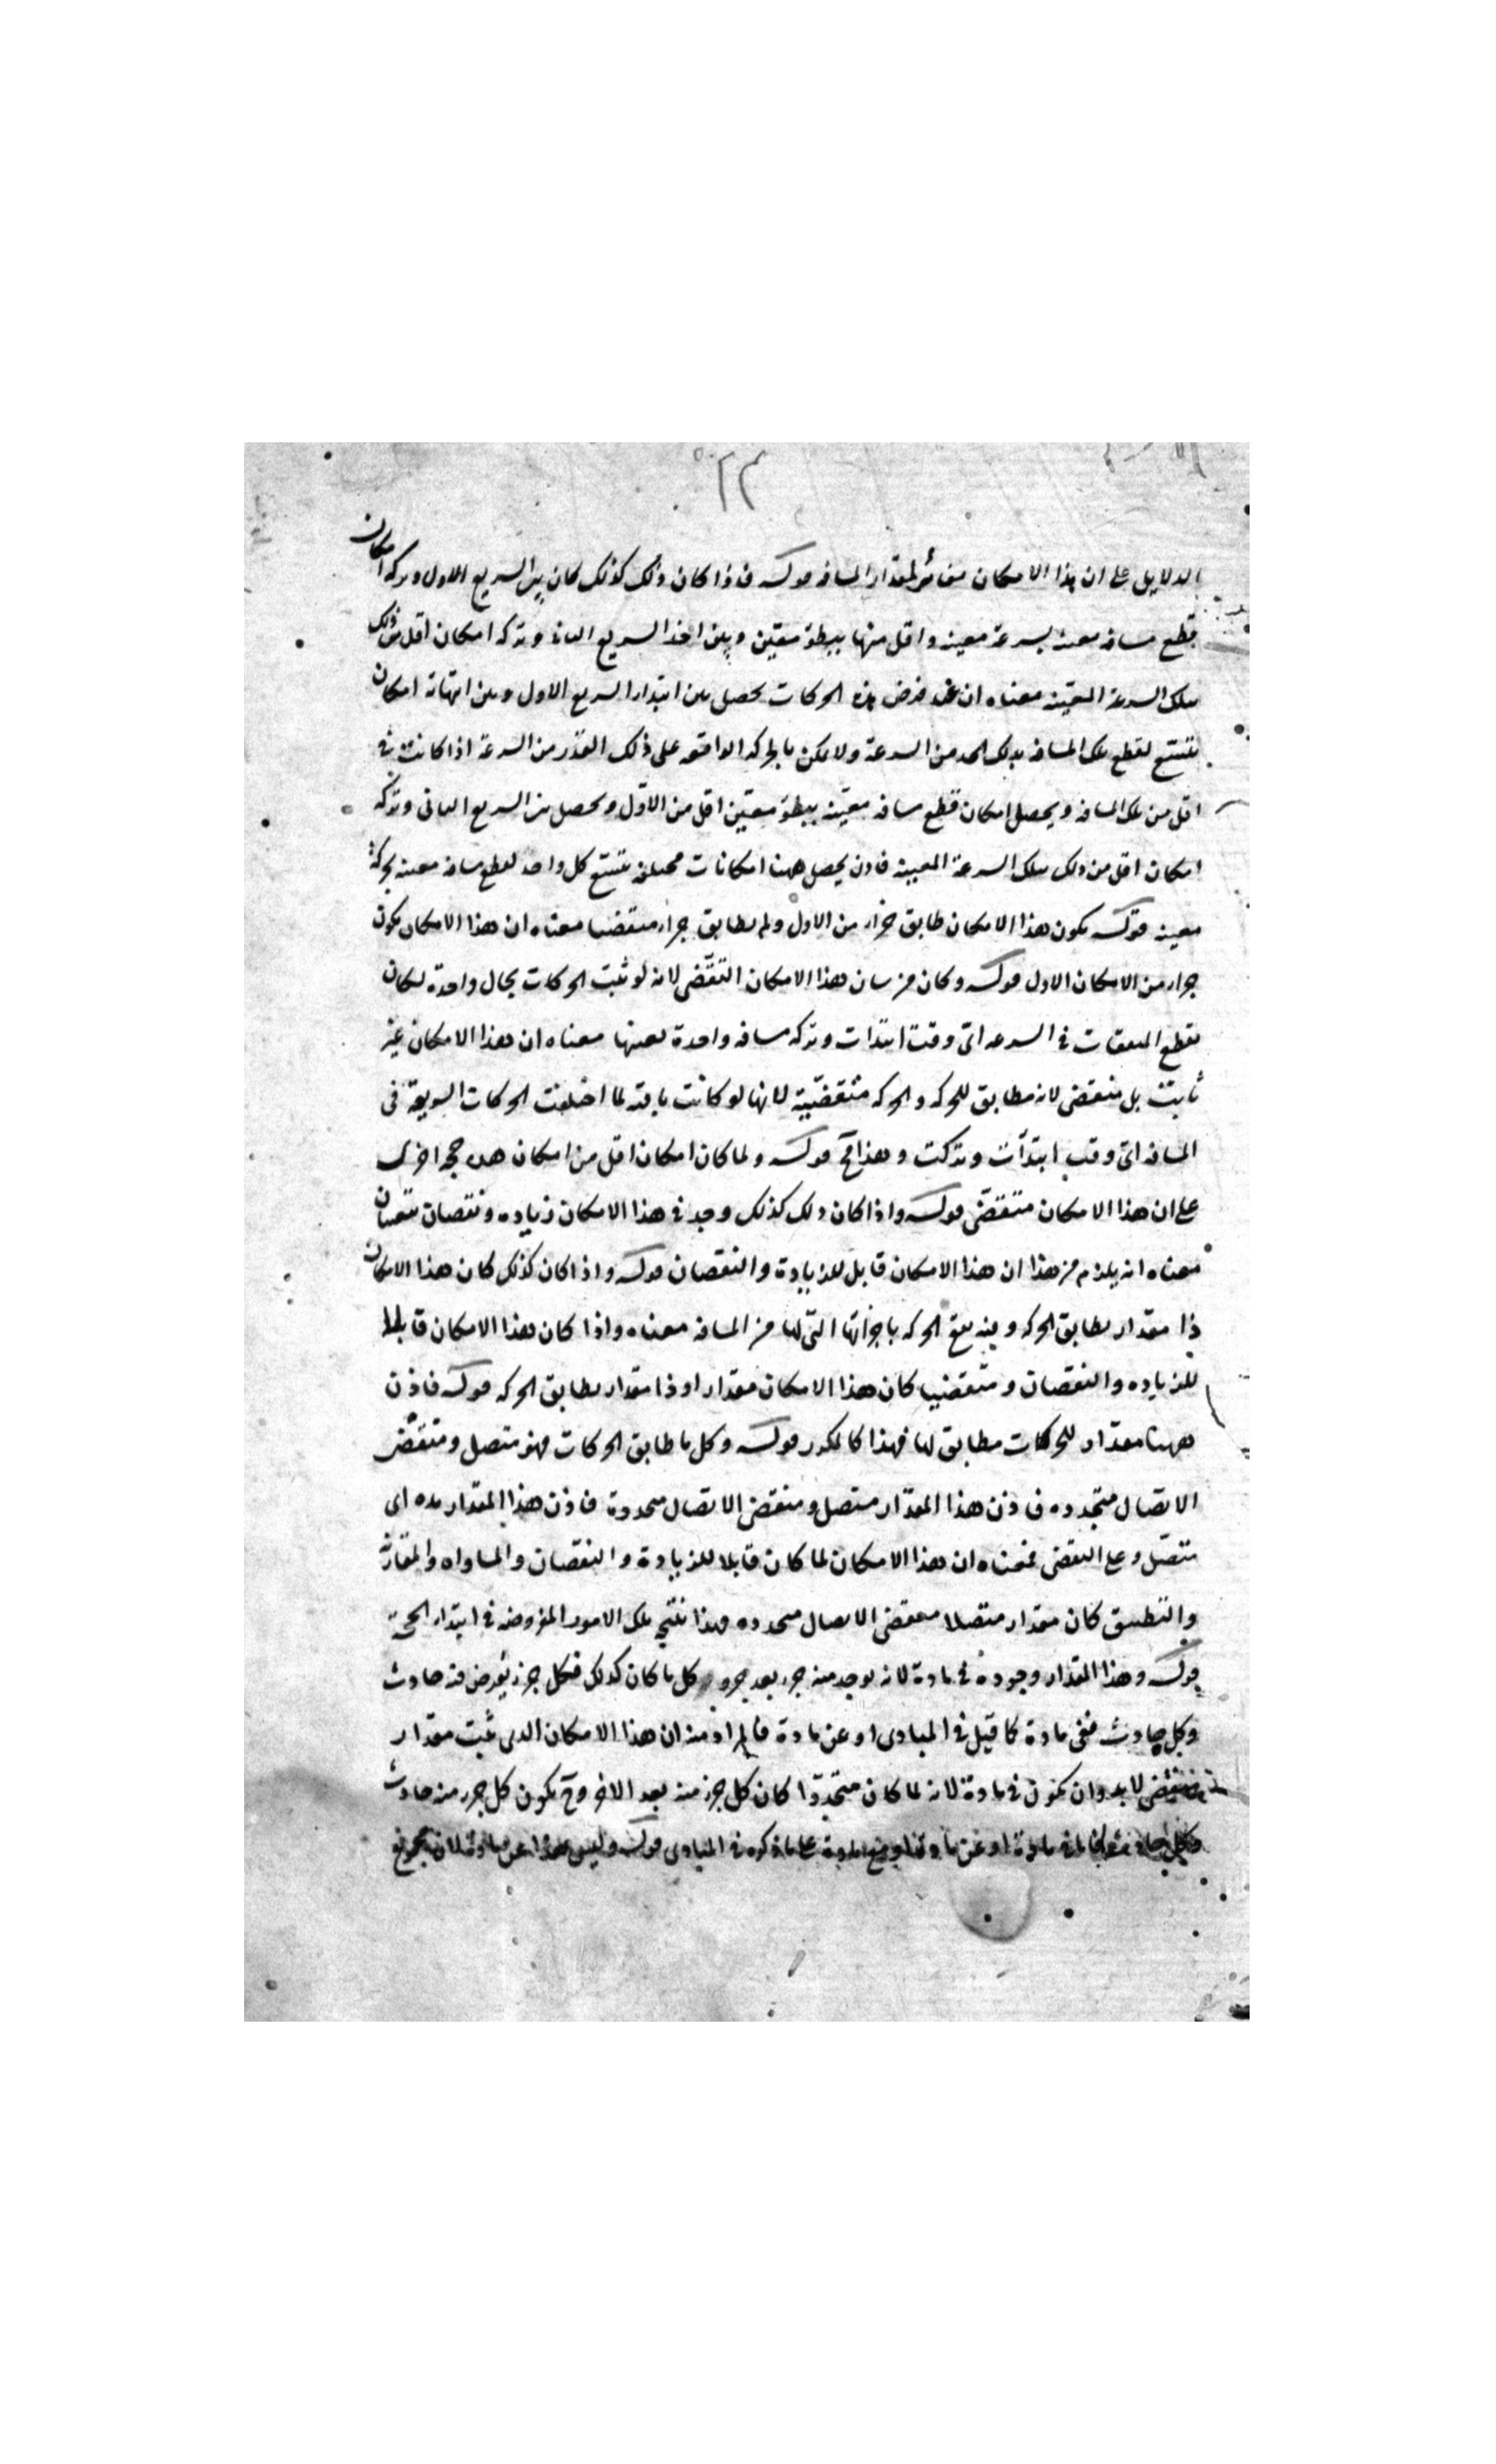 ٢٢
الدلايل على ان هذا الامكان مغاير لمقدار المسافه قوله فاذا كان ذلك كذلك كان بين السريع الاول وتركه امكان
قطع مسافه معينه بسرعة معينه واقل منها ببطؤ معيّن وبين اخذ السريع الثانى وتركه امكان اقل من ذلك
بتلك السرعة المعيّنه معناه ان عند فرض هذه الحركات يحصل بين ابتداء السريع الاول وبين انتهائه امكان
يتسع لقطع تلك المسافه بذلك الحد من السرعة ولا يمكن بالحركه الواقعه على ذلك القدر من السرعة اذا كانت فى
اقل من تلك المسافه ويحصل امكان قطع مسافه معيّنه ببطؤ معيّن اقل من الاوّل ويحصل بين السريع الثانى وتركه
امكان اقل من ذلك بتلك السرعة المعينه فاذن يحصل ههنا امكانات مختلفه يتسع كل واحد لقطع مسافه معينه بحركة
معينه قوله يكون هذا الامكان طابق جزءا من الاول ولم يطابق جزءا متقضيا معناه ان هذا الامكان يكون
جزءا من الامكان الاول قوله وكان من شان هذا الامكان التقضّى لانه لو ثبت الحركات بحال واحدة لكان
يقطع المتفقات فى السرعه اىّ وقت ابتدات وتركه مسافه واحدة بعينها معناه ان هذا الامكان غير
ثابت بل متقضى لانه مطابق للحركه والحركه متقضّية لانها لو كانت باقيه لما اختلفت الحركات السريعة فى
المسافه اىّ وقت ابتدأت وتركت وهذا مح قوله ولما كان امكان اقل من امكان هذه حجه اخرى
على ان هذا الامكان متقضّى قوله واذا كان ذلك كذلك وجد فى هذا الامكان زياده ونقصان يتعينان
معناه انه يلزم من هذا ان هذا الامكان قابل للزيادة والنقصان قوله واذا كان كذلك كان هذا الامكان
ذا مقدار يطابق الحركه وفيه يقع الحركه باجزائها التى لها من المسافه معناه واذا كان هذا الامكان قابلا
للزياده والنقصان ومتقضيا كان هذا الامكان مقدارا او ذا مقدار يطابق الحركه قوله فاذن
ههنا مقدار للحركات مطابق لها فهذا كالمكرر قوله وكل ما طابق الحركات فهو متصل ومتقضّى
الاتصال متجدده فاذن هذا المقدار متصل ومتقضى الاتصال متجددة فاذن هذا المقدار مده اى
متصّل وعلى التقضى فمعناه ان هذا الامكان لما كان قابلا للزيادة والنقصان والمساواه والمفاوتة
والتطبيق كان مقدارا متصلا متقضى الاتصال متجدده وهذا نتيجه تلك الامور المفروضه فى ابتداء الحجّة
قوله وهذا المقدار وجوده فى مادة لانه يوجد منه جزء بعد جزء وكل ما كان كذلك فكل جزء يفرض منه حادث
وكل حادث ففى مادة كما قيل فى المبادى او عن مادة فالمراد منه ان هذا الامكان الذى ثبت مقدار
متقضى لا بد وان يكون فى مادة لانه لما كان متجددا كان كل جزء منه بعد الاخر وح يكون كل جزء منه حادث
وكل حادث فاما فى مادة او عن مادة او مع مادة على ما ذكره فى المبادى قوله وليس هذا عن مادة لان مجموع